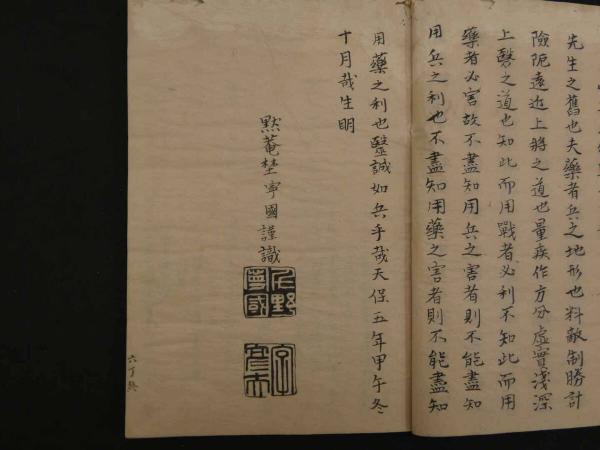 先生之舊也夫藥者兵之地形也料敵制勝計
險阨遠近上將之道也量疾作方分虛實淺深
上醫之道也知此而用戰者必利不知此而用
藥者必害故不盡知用兵之害者則不能盡知
用兵之利也不盡知用藥之害者則不能盡知
用藥之利也毉誠如兵乎哉天保五年甲午冬
十月哉生明
默菴埜寧國謹識
六丁終